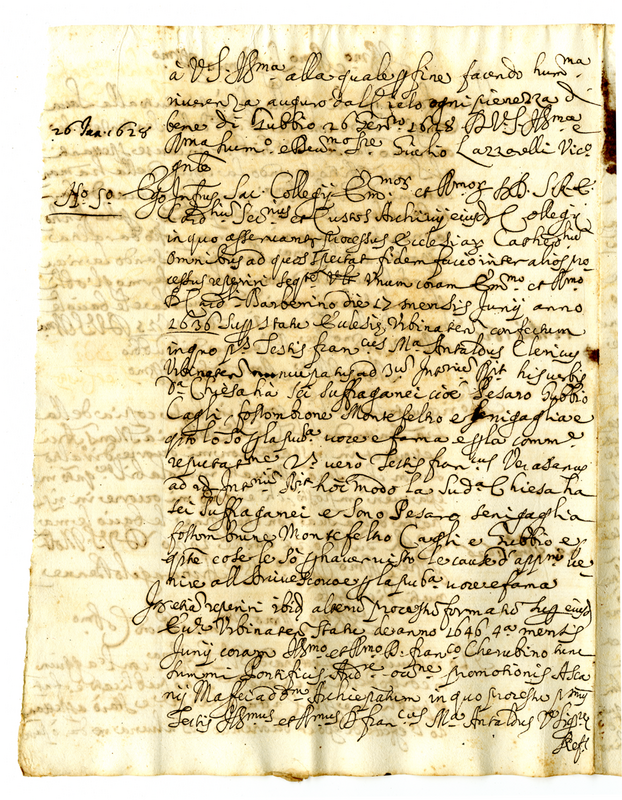 à V.S. Ill.ma alla quale p fine facendo hum.ma
riverenza auguro dal Cielo ogni pienezza di
bene di Gubbio 26 Gen.ro 1628 D V.S. Ill.ma e
26 Jan. 1628
R.ma hum.o e Dev.mo Ser.re Giulio Lazzarelli Vic.o
Gn̄te
No. 50
Ego Inf̄tus Sac. Collegij Em.mor et R.mor DD. S.R.E.
Card. Secr.ius et Custos Archivij eiusd. Collegij
in quo asservantr processus Ecclesiar Cathedralium
omnibus ad quos spectat fidem facio inter alios pro
cessus reperiri seqte Vt. Unum coram Em.mo et R.mo
D. Card. Barberino die 17 mensis Junij anno
1636 super statu Ecclesiæ Urbinaten confectum
in quo p.s Testis Fran.cus Ma. Antaldus Clericus
Urbinaten nuncupatus ad 3.um Int.rium Rndt his verbis
Da. Chiesa hà sei suffraganei cioè Pesaro Gubbio
Cagli fossombrone Montefeltro e senigaglia e
qsto lo sò p la pub.a voce e fama e p la comm.e
reputat.ne V.s verò Testis Fran.cus Veteranus
ad id Int.rium Rndt hoc modo la sud.a Chiesa ha
sei suffraganei e sono Pesaro senigaglia
fossombrone Montefeltro Cagli e Gubbio e
qste cose le sò p haver visto le cause d'app.ni ve
nire all'Arcivescovo e p la pub.a voce e fama
In et.a reperiri ibid. alterum processum formatum sup. eiusd.
Eccl. Urbinaten statu de anno 1646 4.a mensis
Junij coram Ill.mo et R.mo D. Fran.co Cherubino tunc
summi Pontificis Aud.re occ.ne promotionis Asca
nij Maffei ad d.m Archiepatum in quo processu p.mus
Testis Ill.mus et R.mus D. Fran.cus Ma. Antaldus
Refe